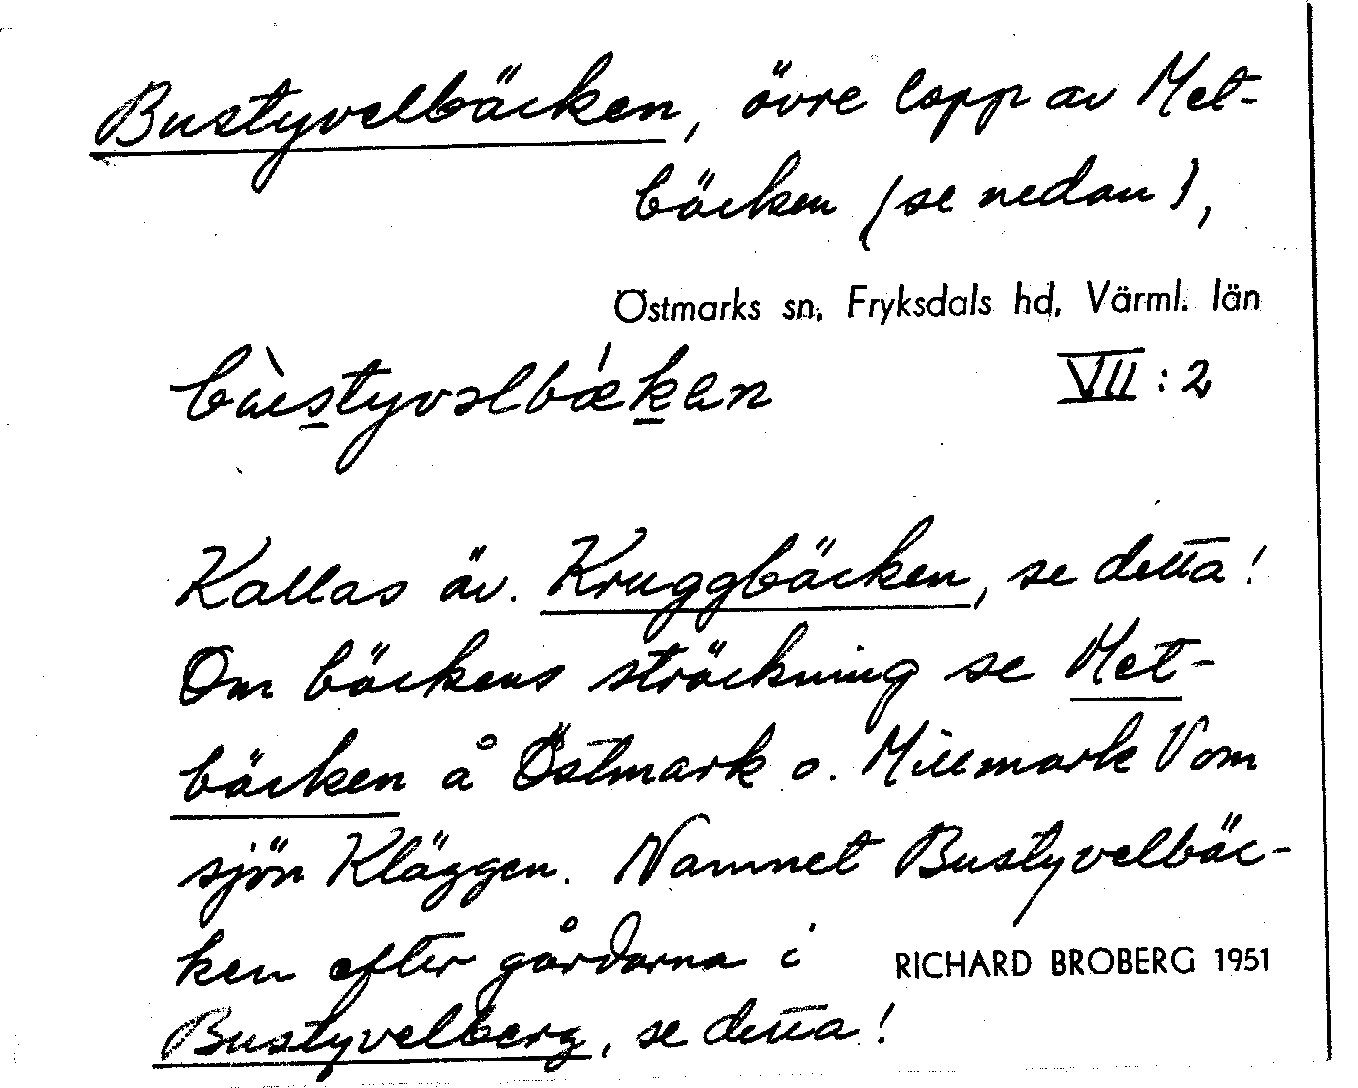 Bustyvelbäcken, övre lopp av Met-
bäcken (se nedan),
Östmarks sn, Fryksdals hd, Värml. län
bùstyvəlbǽkən VII:2
Kallas äv. Kruggbäcken, se detta!
Om bäckens sträckning se Met-
bäcken å Östmark o. Millmark V om
sjön Kläggen. Namnet Bustyvelbäc-
ken efter gårdarna i
RICHARD BROBERG 1951
Bustyvelberg, se detta!